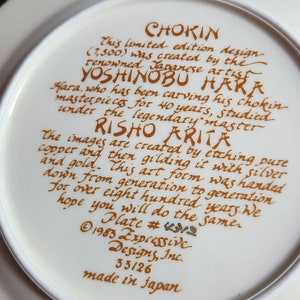 CHOKIN
This limited edition design
(7,500) was created by the
renowned Japanese artist
YOSHINOBU HARA
Hara, who has been carving his chokin
masterpieces for 40 years, studied
under the legendary master
RISHO ARITA
The images are created by etching pure
copper and then gilding it with silver
and gold. This art form was handed
down from generation to generation
for over eight hundred years. We
hope you will do the same.
Plate # 4312
©1983 Expressive
Designs, Inc.
33126
made in Japan